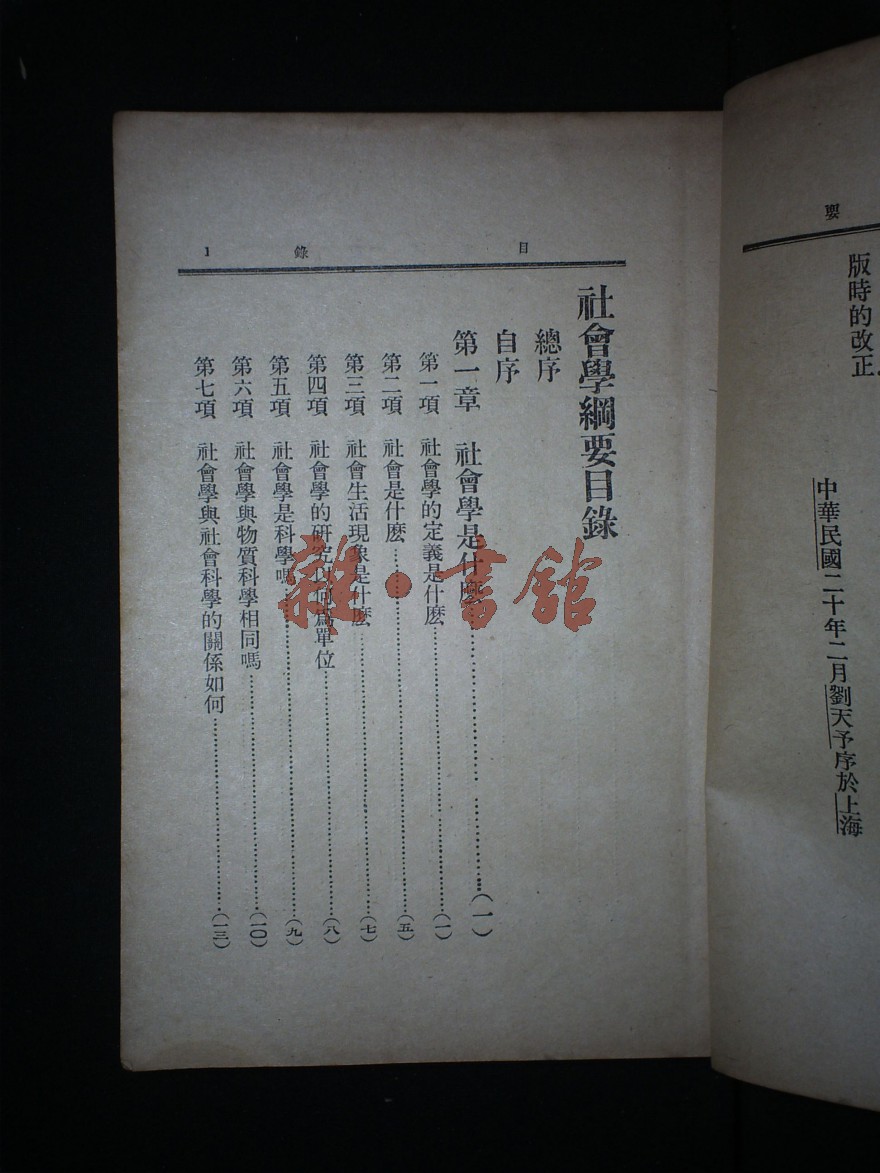 要
版時的改正.
中華民國二十年二月劉天予序於上海
目 錄 1
社會學綱要目錄
總序
自序
第一章 社會學是什麼……(一)
第一項 社會學的定義是什麼……(一)
第二項 社會是什麼……(五)
第三項 社會生活現象是什麼……(七)
第四項 社會學的研究以何爲單位……(八)
第五項 社會學是科學嗎……(九)
第六項 社會學與物質科學相同嗎……(一〇)
第七項 社會學與社會科學的關係如何……(一三)
雜·書館